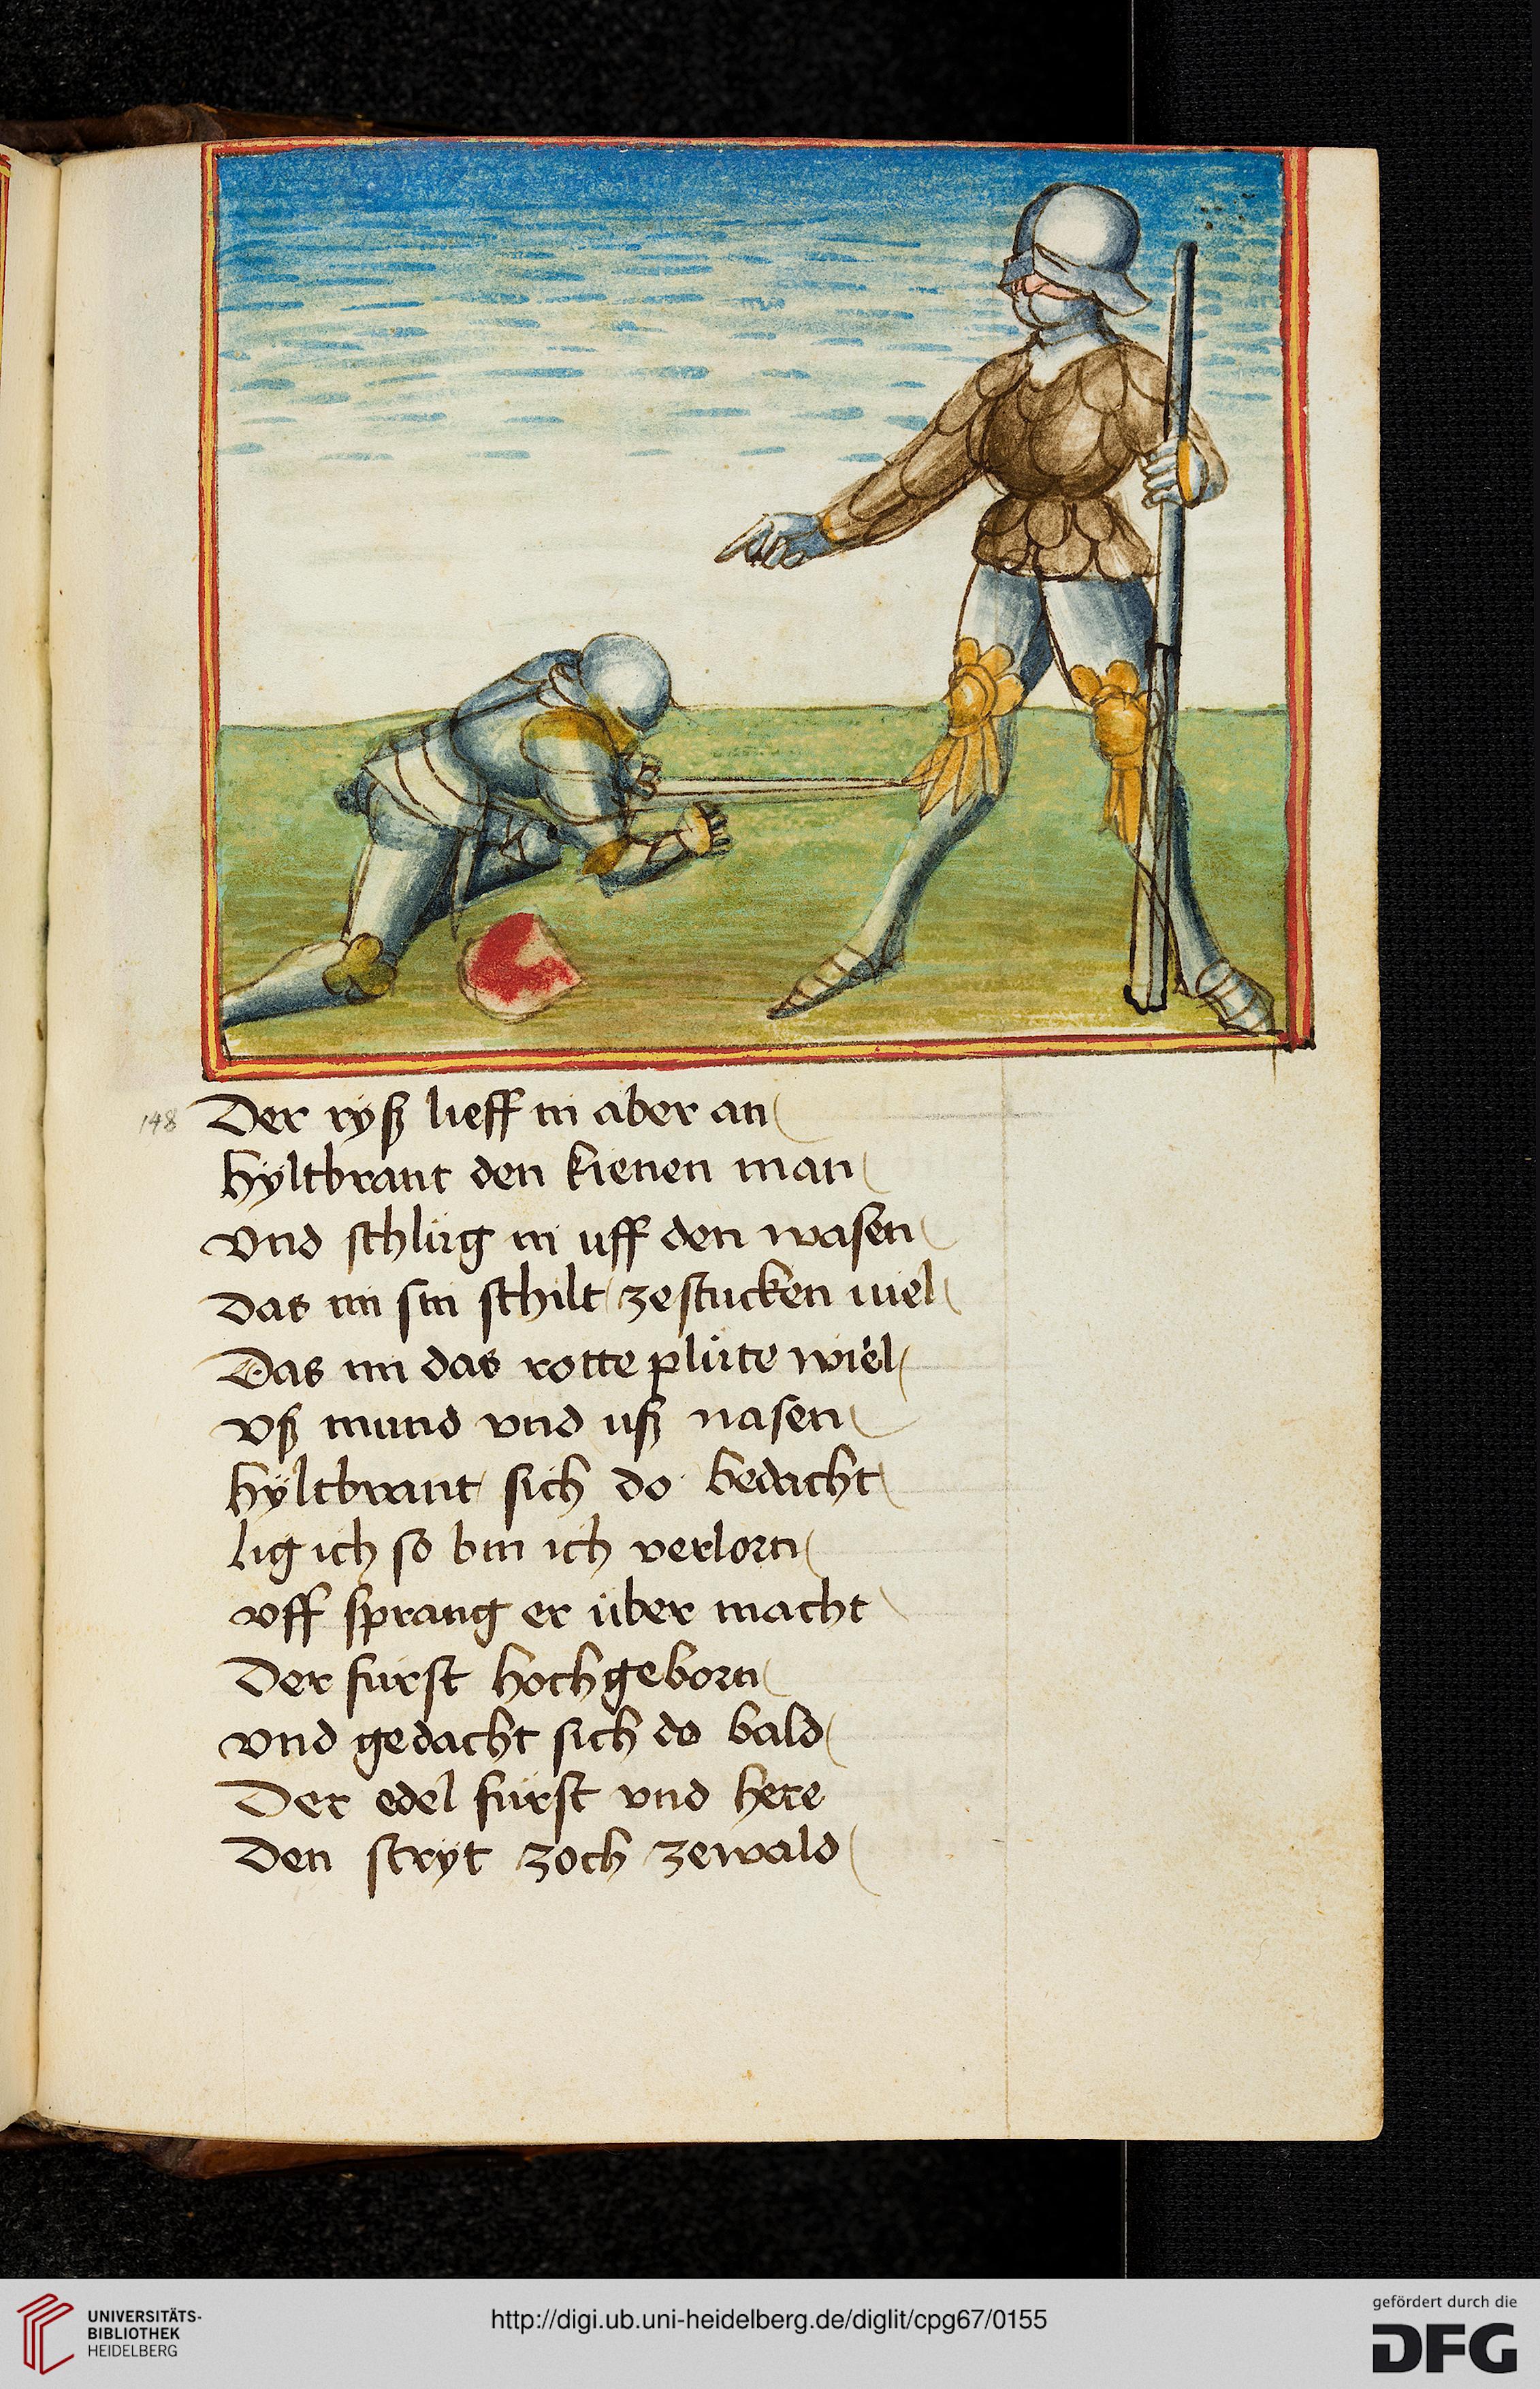 148 Der ryß lieff in aber an
hÿltbrant den kienen man
Vnd schlůg in uff den wasen
Das im sin schilt zestucken viel
Das im das rotte plůte wiel
Vß mund vnd uß nasen
hÿltbrant sich do bedacht
lig ich so bin ich verlorn
Vff sprang er über macht
Der fürst hochgeborn
Vnd gedacht sich do bald
Der edel fürst vnd here
Den stryt zoch zewald
UNIVERSITÄTS-
BIBLIOTHEK
HEIDELBERG
http://digi.ub.uni-heidelberg.de/diglit/cpg67/0155
gefördert durch die
DFG